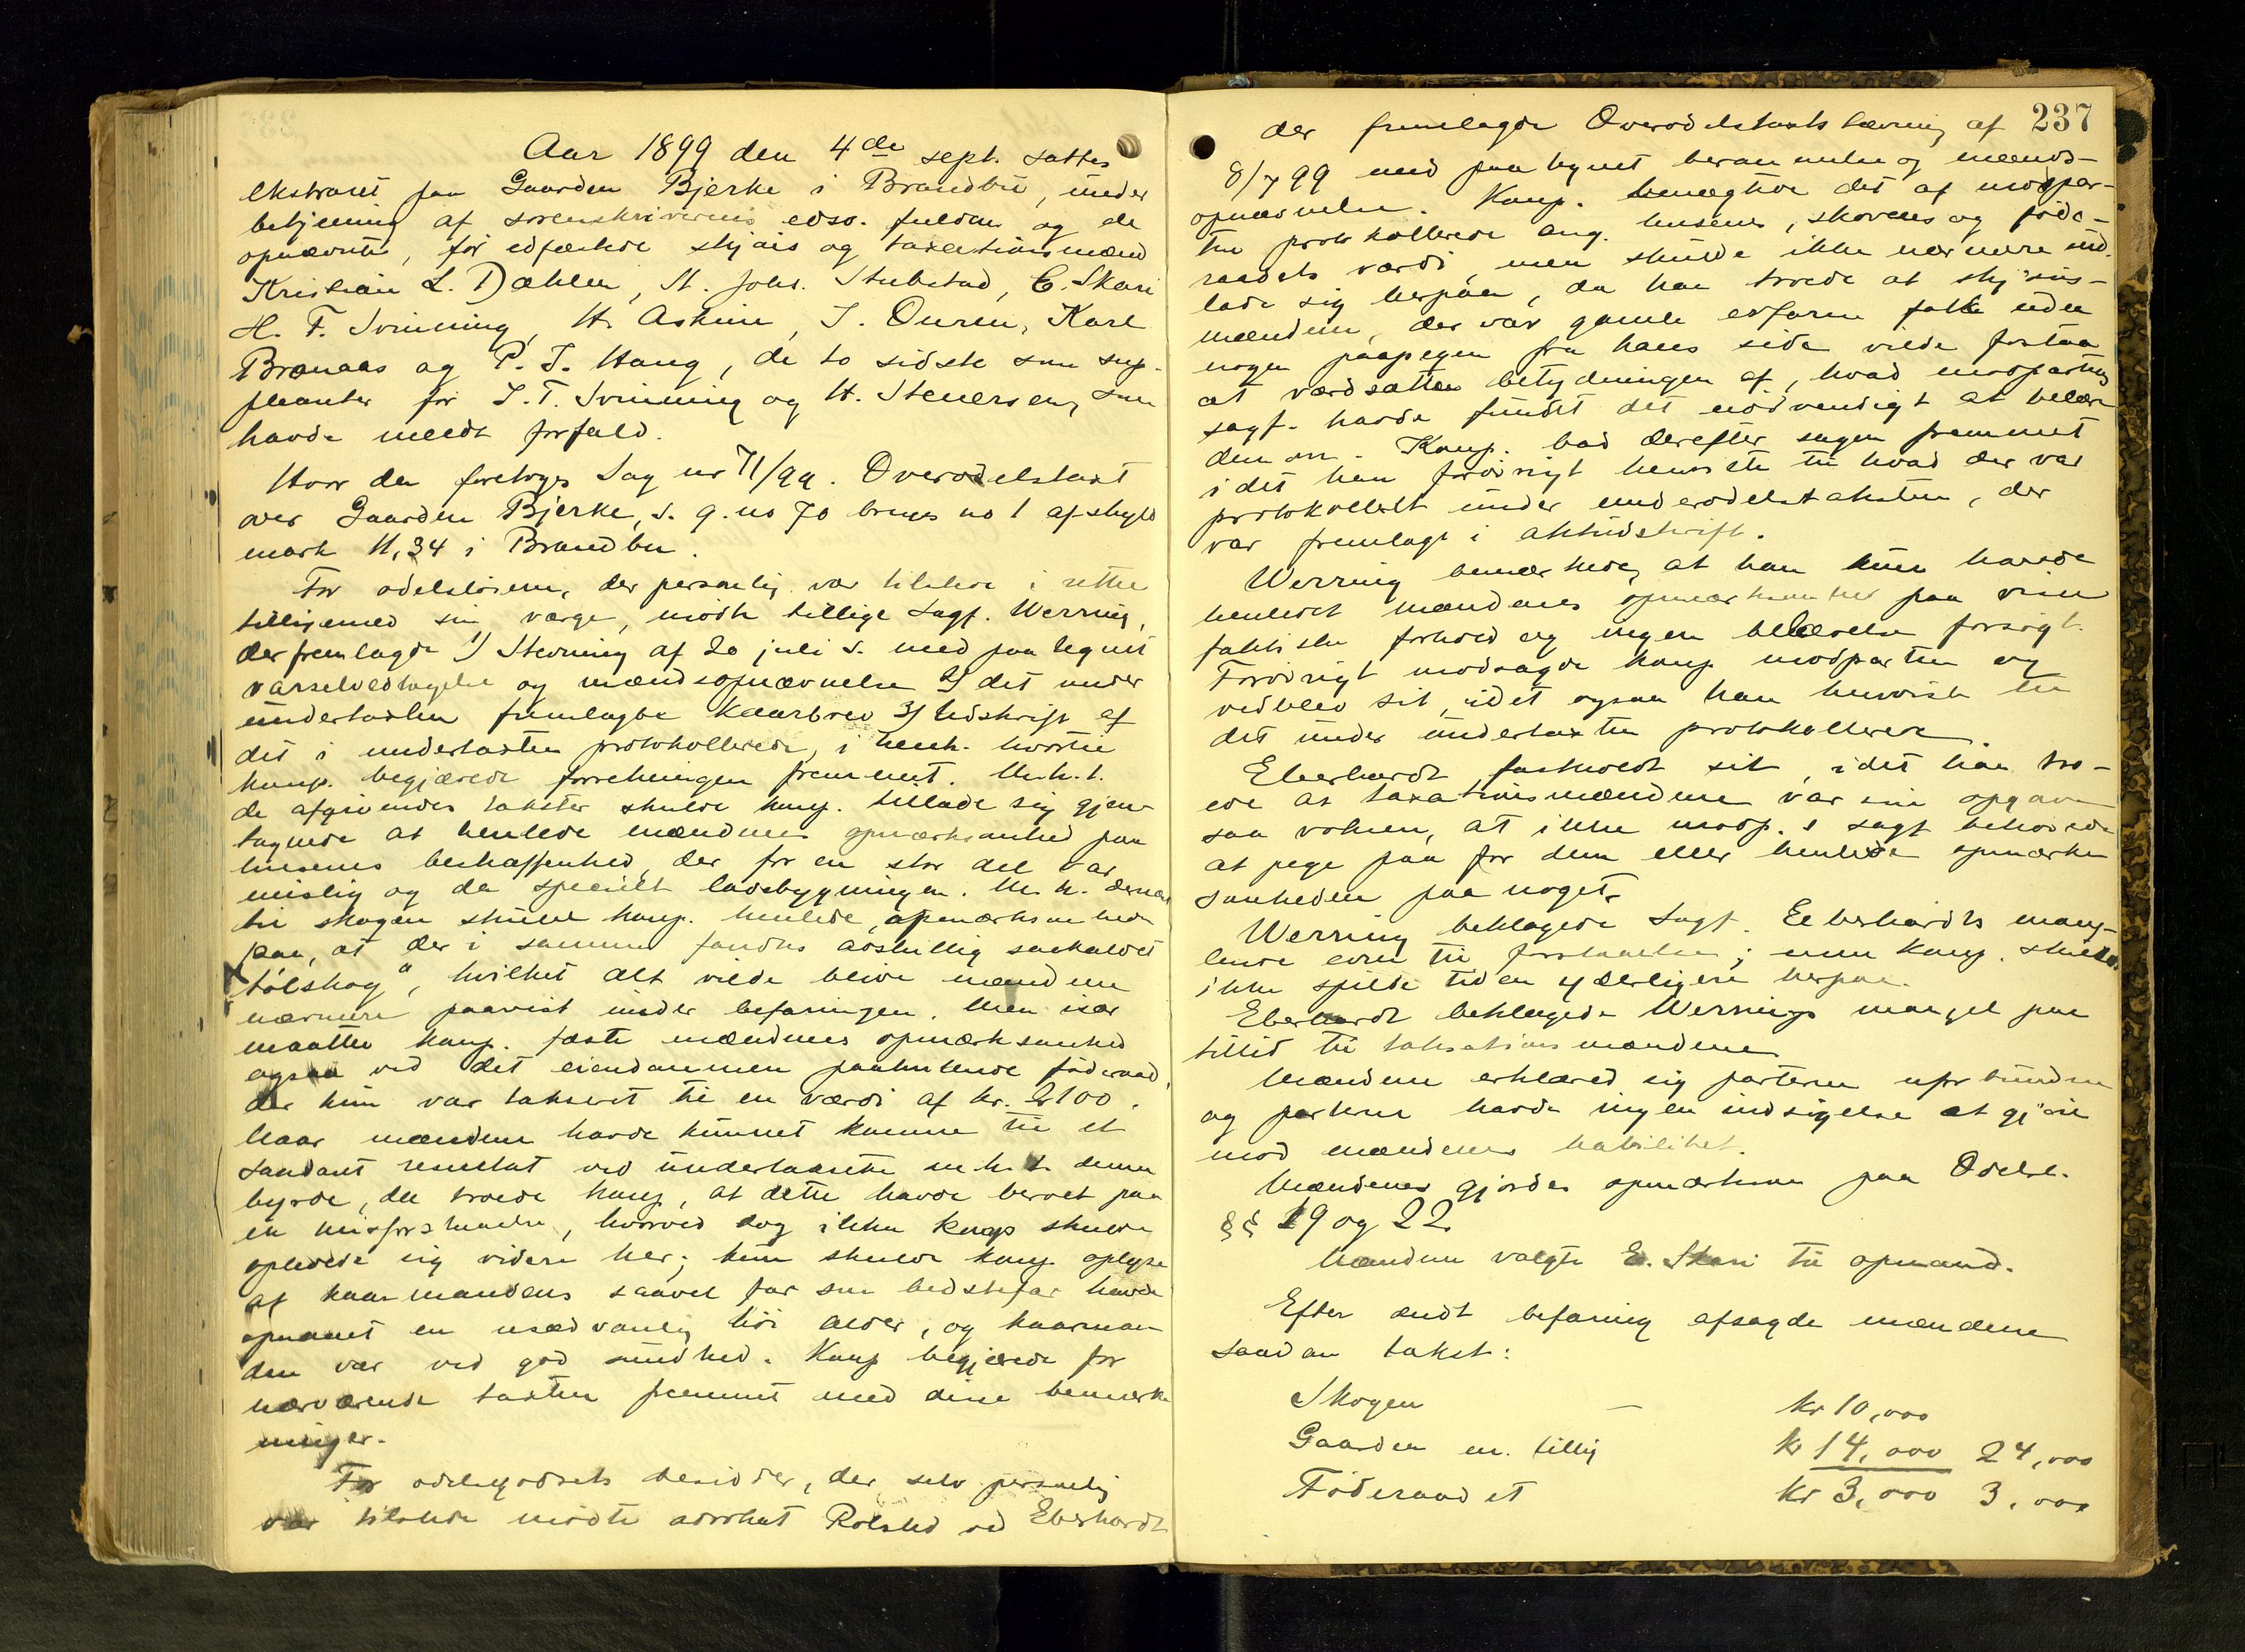 Aar 1899 den 4de sept. sattes
ekstraret paa Gaarden Bjerke i Brandbu, under
betjening af sorenskriverens edsv. fuldm. og de
opnævnte, før edfæstede skjøns og taxationsmænd
Kristian L. Dæhlen, H. Johs. Stubstad, E. Skari
H. F. Svinning, H. Askim, J. Ouren, Karl
Branaas og P. J. Haug, de to sidste som sup-
pleanter for J. T. Svinning og H. Stenersen, som
havde meldt forfald.
Hvor da foretoges Sag nr 71/99. Overodelstaxt
over Gaarden Bjerke, s. g. no 70 bruges no 1 af skyld
mark 11,34 i Brandbu.
For odelsløseren, der personlig var tilstede i rette
tilligemed sin værge, mødte tillige Sagf. Werring,
der fremlagde 1) Stevning af 20 juli s. med paategnet
varselvedtagelse og mændsopnævnelse 2) det under
undertaxten fremlagte kaarbrev 3) Udskrift af
det i undertaxten protokollerede, i henh. hvortil
komp. begjærede forretningen fremmet. M.h.t.
de afgivendes takster skulde komp. tillade sig gjen-
tagende at henlede mændenes opmærksomhed paa
husenes beskaffenhed, der for en stor del var
mislig og da specielt ladebygningen. M. h. dernæst
til skogen skulde komp. henlede opmærksomheden
paa, at der i samme fandtes adskillig saakaldet
"tølskog", hvilket alt vilde blive mændene
nærmere paavist under befaringen. Men især
maatte komp. fæste mændenes opmærksomhed
ogsaa ved det eiendommen paahvilende føderaad,
der kun var taksert til en værdi af kr. 2100.
Naar mændene havde kunnet komme til et
saadant resultat ved undertaxten m.h.t. denne
byrde, da troede komp, at dette havde beroet paa
en misforstaaelse, hvorved dog ikke komp skulde
opholde sig videre her; kun skulde komp oplyse
at kaarmandens saavel far som bedstefar havde
opnaaet en usædvanlig høi alder, og kaarman-
den var ved god sundhed. Komp begjærede for
nærværende taxten fremmet med disse bemærk-
ninger.
For odelsgodsets besidder, der selv personlig
var tilstede mødte advokat Rolsted ved Eberhardt
237
der fremlagde Overodelstaxtstævning af
8/7 99 med paategnet berammelse og mænds-
opnævnelse. Komp. benægtede det af modpar-
ten protokollerede ang. husenes, skovens og føde-
raadets værdi, men skulde ikke nærmere ind-
lade sig herpaa, da han troede at skjøns-
mændene, der var gamle erfarne folk uden
nogen paapegen fra hans side vilde forstaa
at værdsætte betydningen af, hvad modpartens
sagf. havde fundet det nødvendigt at belære
dem om. Komp. bad derefter sagen fremmet
idet han forøvrigt henviste til hvad der var
protokollert under underodelstaksten, der
var fremlagt i aktudskrift.
Werring bemærkede, at han kun havde
henledet mændenes opmærksomhed paa visse
faktiske forhold og ingen belærelse forsøgt.
Forøvrigt modsagde komp modparten og
vedblev sit, idet ogsaa han henviste til
det under undertaxten protokollerede.
Eberhardt fastholdt sit, idet han tro-
ede at taxationsmændene var sin opgave
saa voksen, at ikke modp.s sagf behøvede
at pege paa for dem eller henlede opmærk-
somheden paa noget.
Werring beklagede Sagf. Eberhardts mang-
lende evne til forstaaelse; men komp. skulde
ikke spilde tiden yderligere herpaa.
Eberhardt beklagede Werrings mangel paa
tillid til taksationsmændene.
Mændene erklæred sig parterne uforbundne
og parterne havde ingen indsigelse at gjøre
mod mændenes habilitet.
Mændenes gjordes opmærksom paa Odelsl.
§§ 19 og 22
Mændene valgte E. Skari til opmand.
Efter endt befaring afsagde mændene
saadan takst:
Skogen — kr 10,000
Gaarden m. tillig kr 14,000 24,000
Føderaadet kr 3,000 3,000